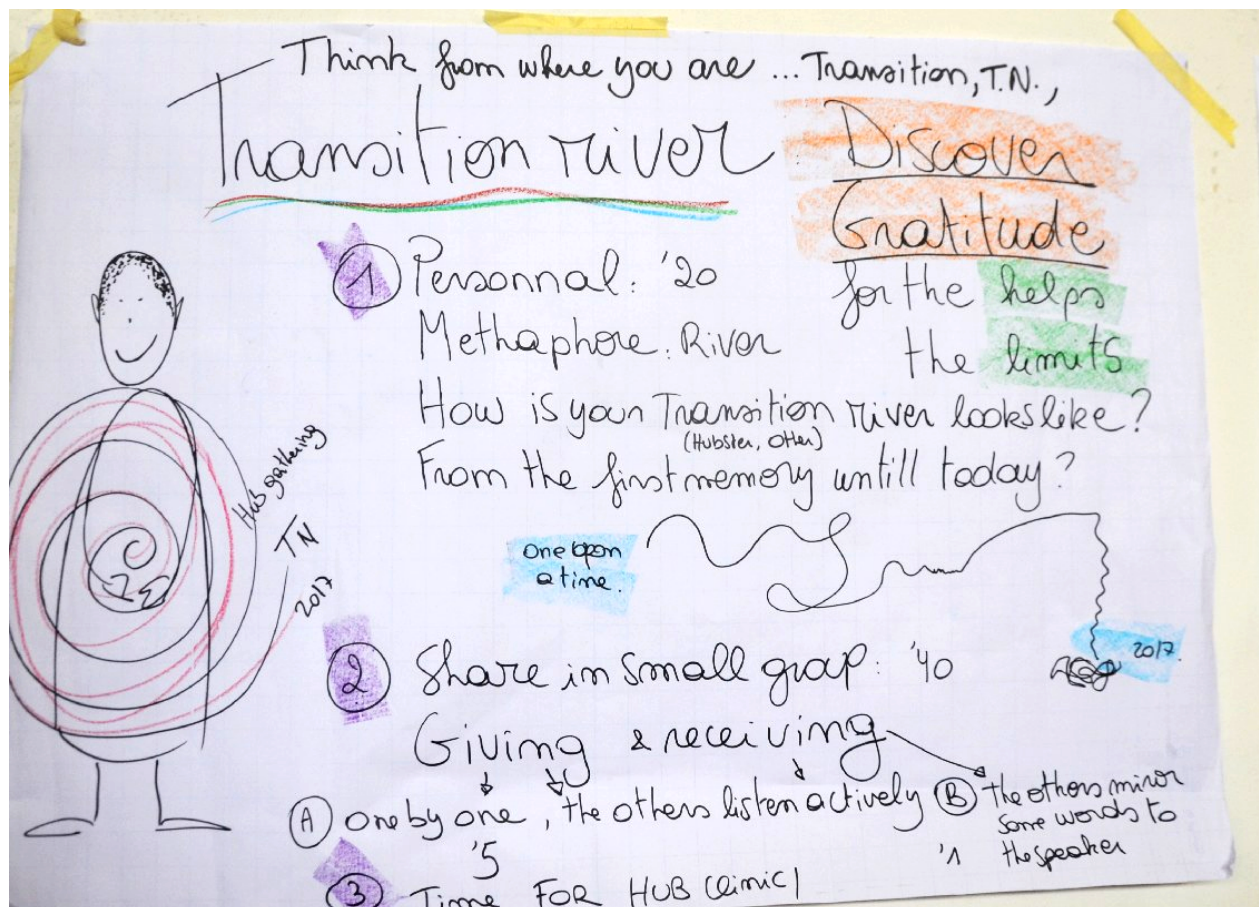 Think from where you are ... Transition, T.N.,
Transition river
Discover
Gratitude
for the helps
the limits
1 Personnal: '20
Methaphore: River
How is your Transition river looks like?
(Hubster, Other)
From the first memory untill today?
Hub gathering
TN
2017
One upon
a time.
2017.
2 Share in small group: '40
Giving & receiving
A One by one, the others listen actively
'5
B the others mirror
some words to
'1 the speaker
3 Time FOR HUB Clinic